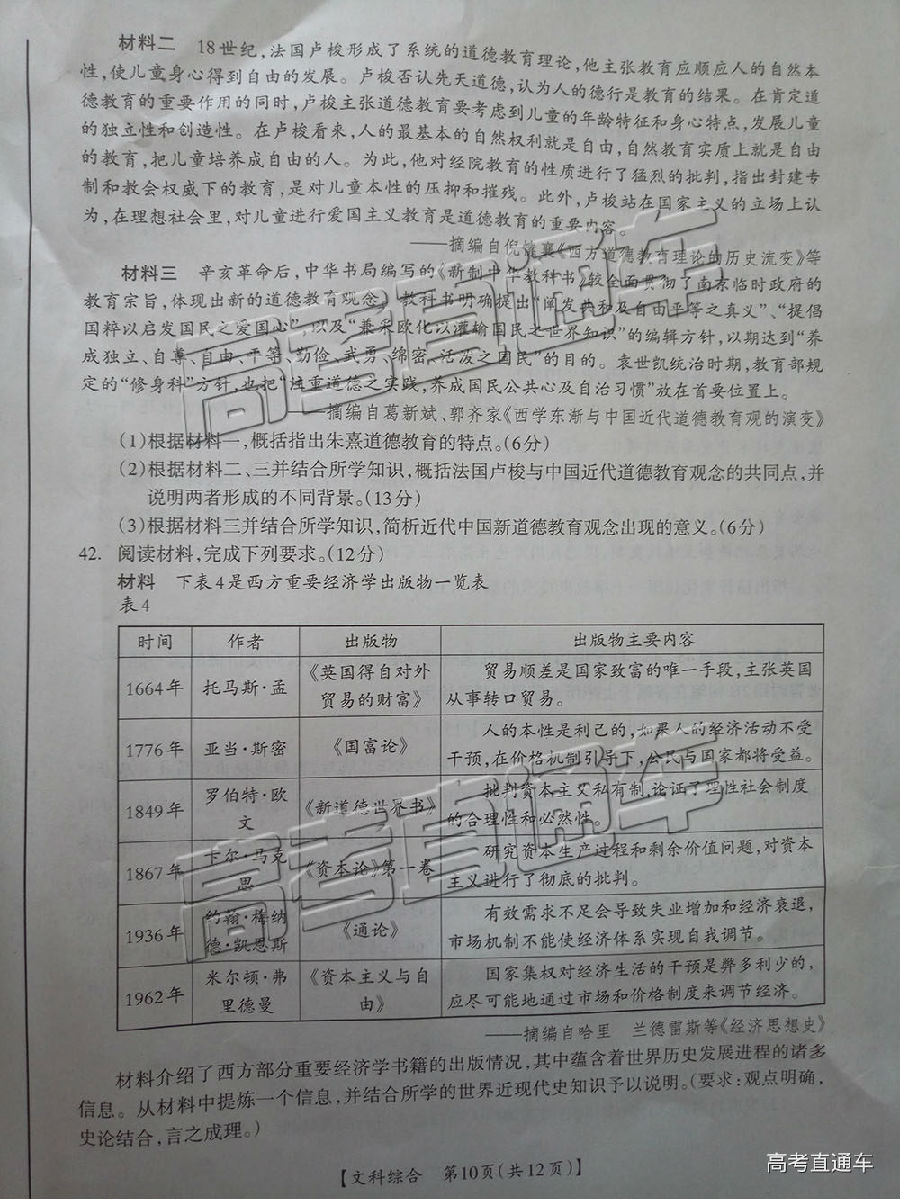 材料二 18世纪,法国卢梭形成了系统的道德教育理论,他主张教育应顺应人的自然本
性,使儿童身心得到自由的发展。卢梭否认先天道德,认为人的德行是教育的结果。在肯定道
德教育的重要作用的同时,卢梭主张道德教育要考虑到儿童的年龄特征和身心特点,发展儿童
的独立性和创造性。在卢梭看来,人的最基本的自然权利就是自由,自然教育实质上就是自由
的教育,把儿童培养成自由的人。为此,他对经院教育的性质进行了猛烈的批判,指出封建专
制和教会权威下的教育,是对儿童本性的压抑和摧残。此外,卢梭站在国家主义的立场上认
为,在理想社会里,对儿童进行爱国主义教育是道德教育的重要内容。
——摘编自倪愫襄《西方道德教育理论的历史流变》等
材料三 辛亥革命后,中华书局编写的《新制中华教科书》较全面贯彻了南京临时政府的
教育宗旨,体现出新的道德教育观念。教科书明确提出“阐发共和及自由平等之真义”、“提倡
国粹以启发国民之爱国心”,以及“兼采欧化以灌输国民之世界知识”的编辑方针,以期达到“养
成独立、自尊、自由、平等、勤俭、武勇、绵密、活泼之国民”的目的。袁世凯统治时期,教育部规
定的“修身科”方针,也把“注重道德之实践,养成国民公共心及自治习惯”放在首要位置上。
——摘编自葛新斌、郭齐家《西学东渐与中国近代道德教育观的演变》
(1)根据材料一,概括指出朱熹道德教育的特点。(6分)
(2)根据材料二、三并结合所学知识,概括法国卢梭与中国近代道德教育观念的共同点,并
说明两者形成的不同背景。(13分)
(3)根据材料三并结合所学知识,简析近代中国新道德教育观念出现的意义。(6分)
42. 阅读材料,完成下列要求。(12分)
材料 下表4是西方重要经济学出版物一览表
表4
时间 作者 出版物 出版物主要内容
1664年 托马斯·孟 《英国得自对外
贸易的财富》 贸易顺差是国家致富的唯一手段,主张英国
从事转口贸易。
1776年 亚当·斯密 《国富论》 人的本性是利己的,如果人的经济活动不受
干预,在价格机制引导下,公民与国家都将受益。
1849年 罗伯特·欧
文 《新道德世界书》 批判资本主义私有制,论证了理性社会制度
的合理性和必然性。
1867年 卡尔·马克
思 《资本论》第一卷 研究资本生产过程和剩余价值问题,对资本
主义进行了彻底的批判。
1936年 约翰·梅纳
德·凯恩斯 《通论》 有效需求不足会导致失业增加和经济衰退,
市场机制不能使经济体系实现自我调节。
1962年 米尔顿·弗
里德曼 《资本主义与自
由》 国家集权对经济生活的干预是弊多利少的,
应尽可能地通过市场和价格制度来调节经济。
——摘编自哈里 兰德雷斯等《经济思想史》
材料介绍了西方部分重要经济学书籍的出版情况,其中蕴含着世界历史发展进程的诸多
信息。从材料中提炼一个信息,并结合所学的世界近现代史知识予以说明。(要求:观点明确,
史论结合,言之成理。)
【文科综合 第10页(共12页)】
高考直通车
高考直通车
高考直通车